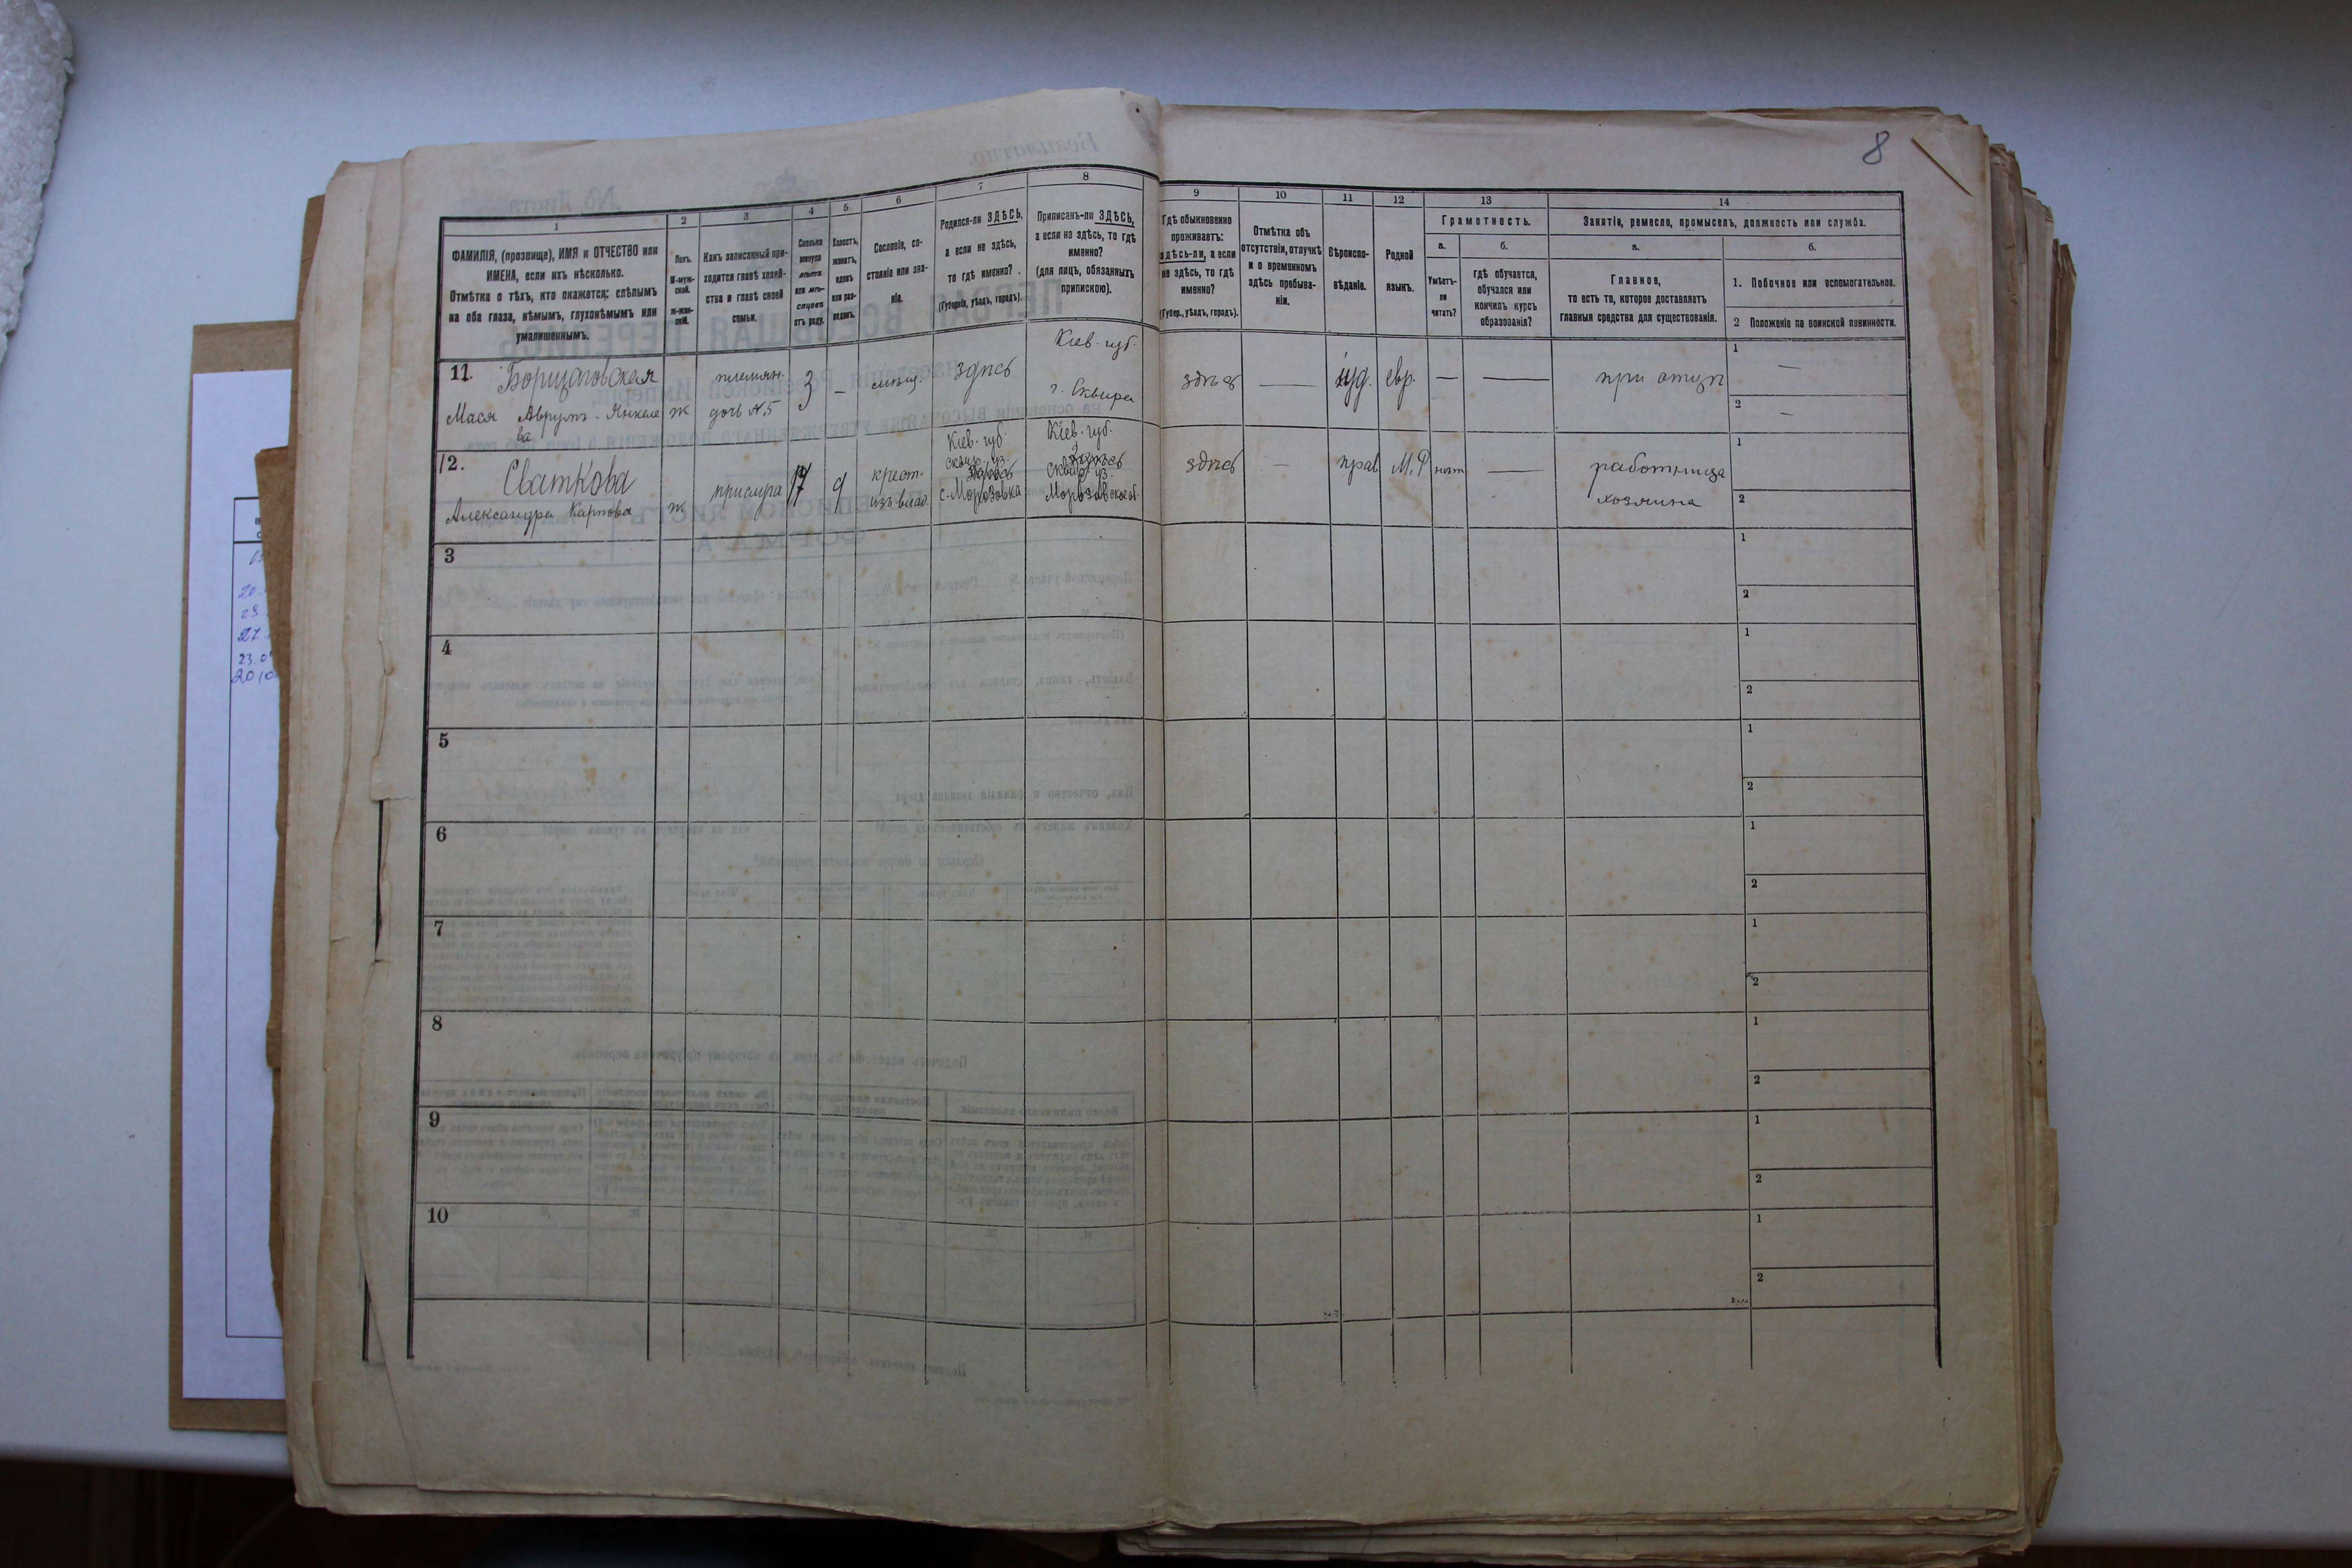 8
1
2
3
4
5
6
7
8
9
10
11
12
13
14
ФАМИЛІЯ, (прозвище), ИМЯ и ОТЧЕСТВО или
ИМЕНА, если ихъ нѣсколько.
Отмѣтка о тѣхъ, кто окажется: слѣпымъ
на оба глаза, нѣмымъ, глухонѣмымъ или
умалишеннымъ.
Полъ.
М-муж-
ской.
ж-жен-
скій.
Какъ записанный при-
ходится главѣ хозяй-
ства и главѣ своей
семьи.
Сколько
минуло
лѣтъ
или мѣ-
сяцевъ
отъ роду.
Холостъ,
женатъ,
вдовъ
или раз-
веденъ.
Сословіе, со-
стояніе или зва-
ніе.
Родился-ли ЗДѢСЬ,
а если не здѣсь,
то гдѣ именно?
(Губернія, уѣздъ, городъ).
Приписанъ-ли ЗДѢСЬ,
а если не здѣсь, то гдѣ
именно?
(для лицъ, обязанныхъ
припискою).
Гдѣ обыкновенно
проживаетъ:
здѣсь-ли, а если
не здѣсь, то гдѣ
именно?
(Губер., уѣздъ, городъ).
Отмѣтка объ
отсутствіи, отлучкѣ
и о временномъ
здѣсь пребыва-
ніи.
Вѣроиспо-
вѣданіе.
Родной
языкъ.
Грамотность.
а.
Умѣетъ-
ли
читать?
б.
гдѣ обучается,
обучался или
кончилъ курсъ
образованія?
Занятіе, ремесло, промыселъ, должность или служба.
а.
Главное,
то есть то, которое доставляетъ
главныя средства для существованія.
б.
1. Побочное или вспомогательное.
2 Положеніе по воинской повинности.
11.
Борщаговская
Мася Аврумъ-Янкеле
ва
ж
племян.
дочь N.5
3
—
мѣщ.
здѣсь
Кіев. губ.
г. Сквира
здѣсь
—
іуд.
евр.
—
—
при отцѣ
1
—
2
—
12.
Сваткова
Александра Карпова
ж
прислуга
17
д
крест.
изъ влад.
Кіев. губ.
Сквир. уз.
с. Морозовка
Кіев. губ.
Сквир. уз.
здѣсь
—
прав
М.Р
нѣт
—
работница
хозяина
1
2
3
1
2
4
1
2
5
1
2
6
1
2
7
1
2
8
1
2
9
1
2
10
1
2